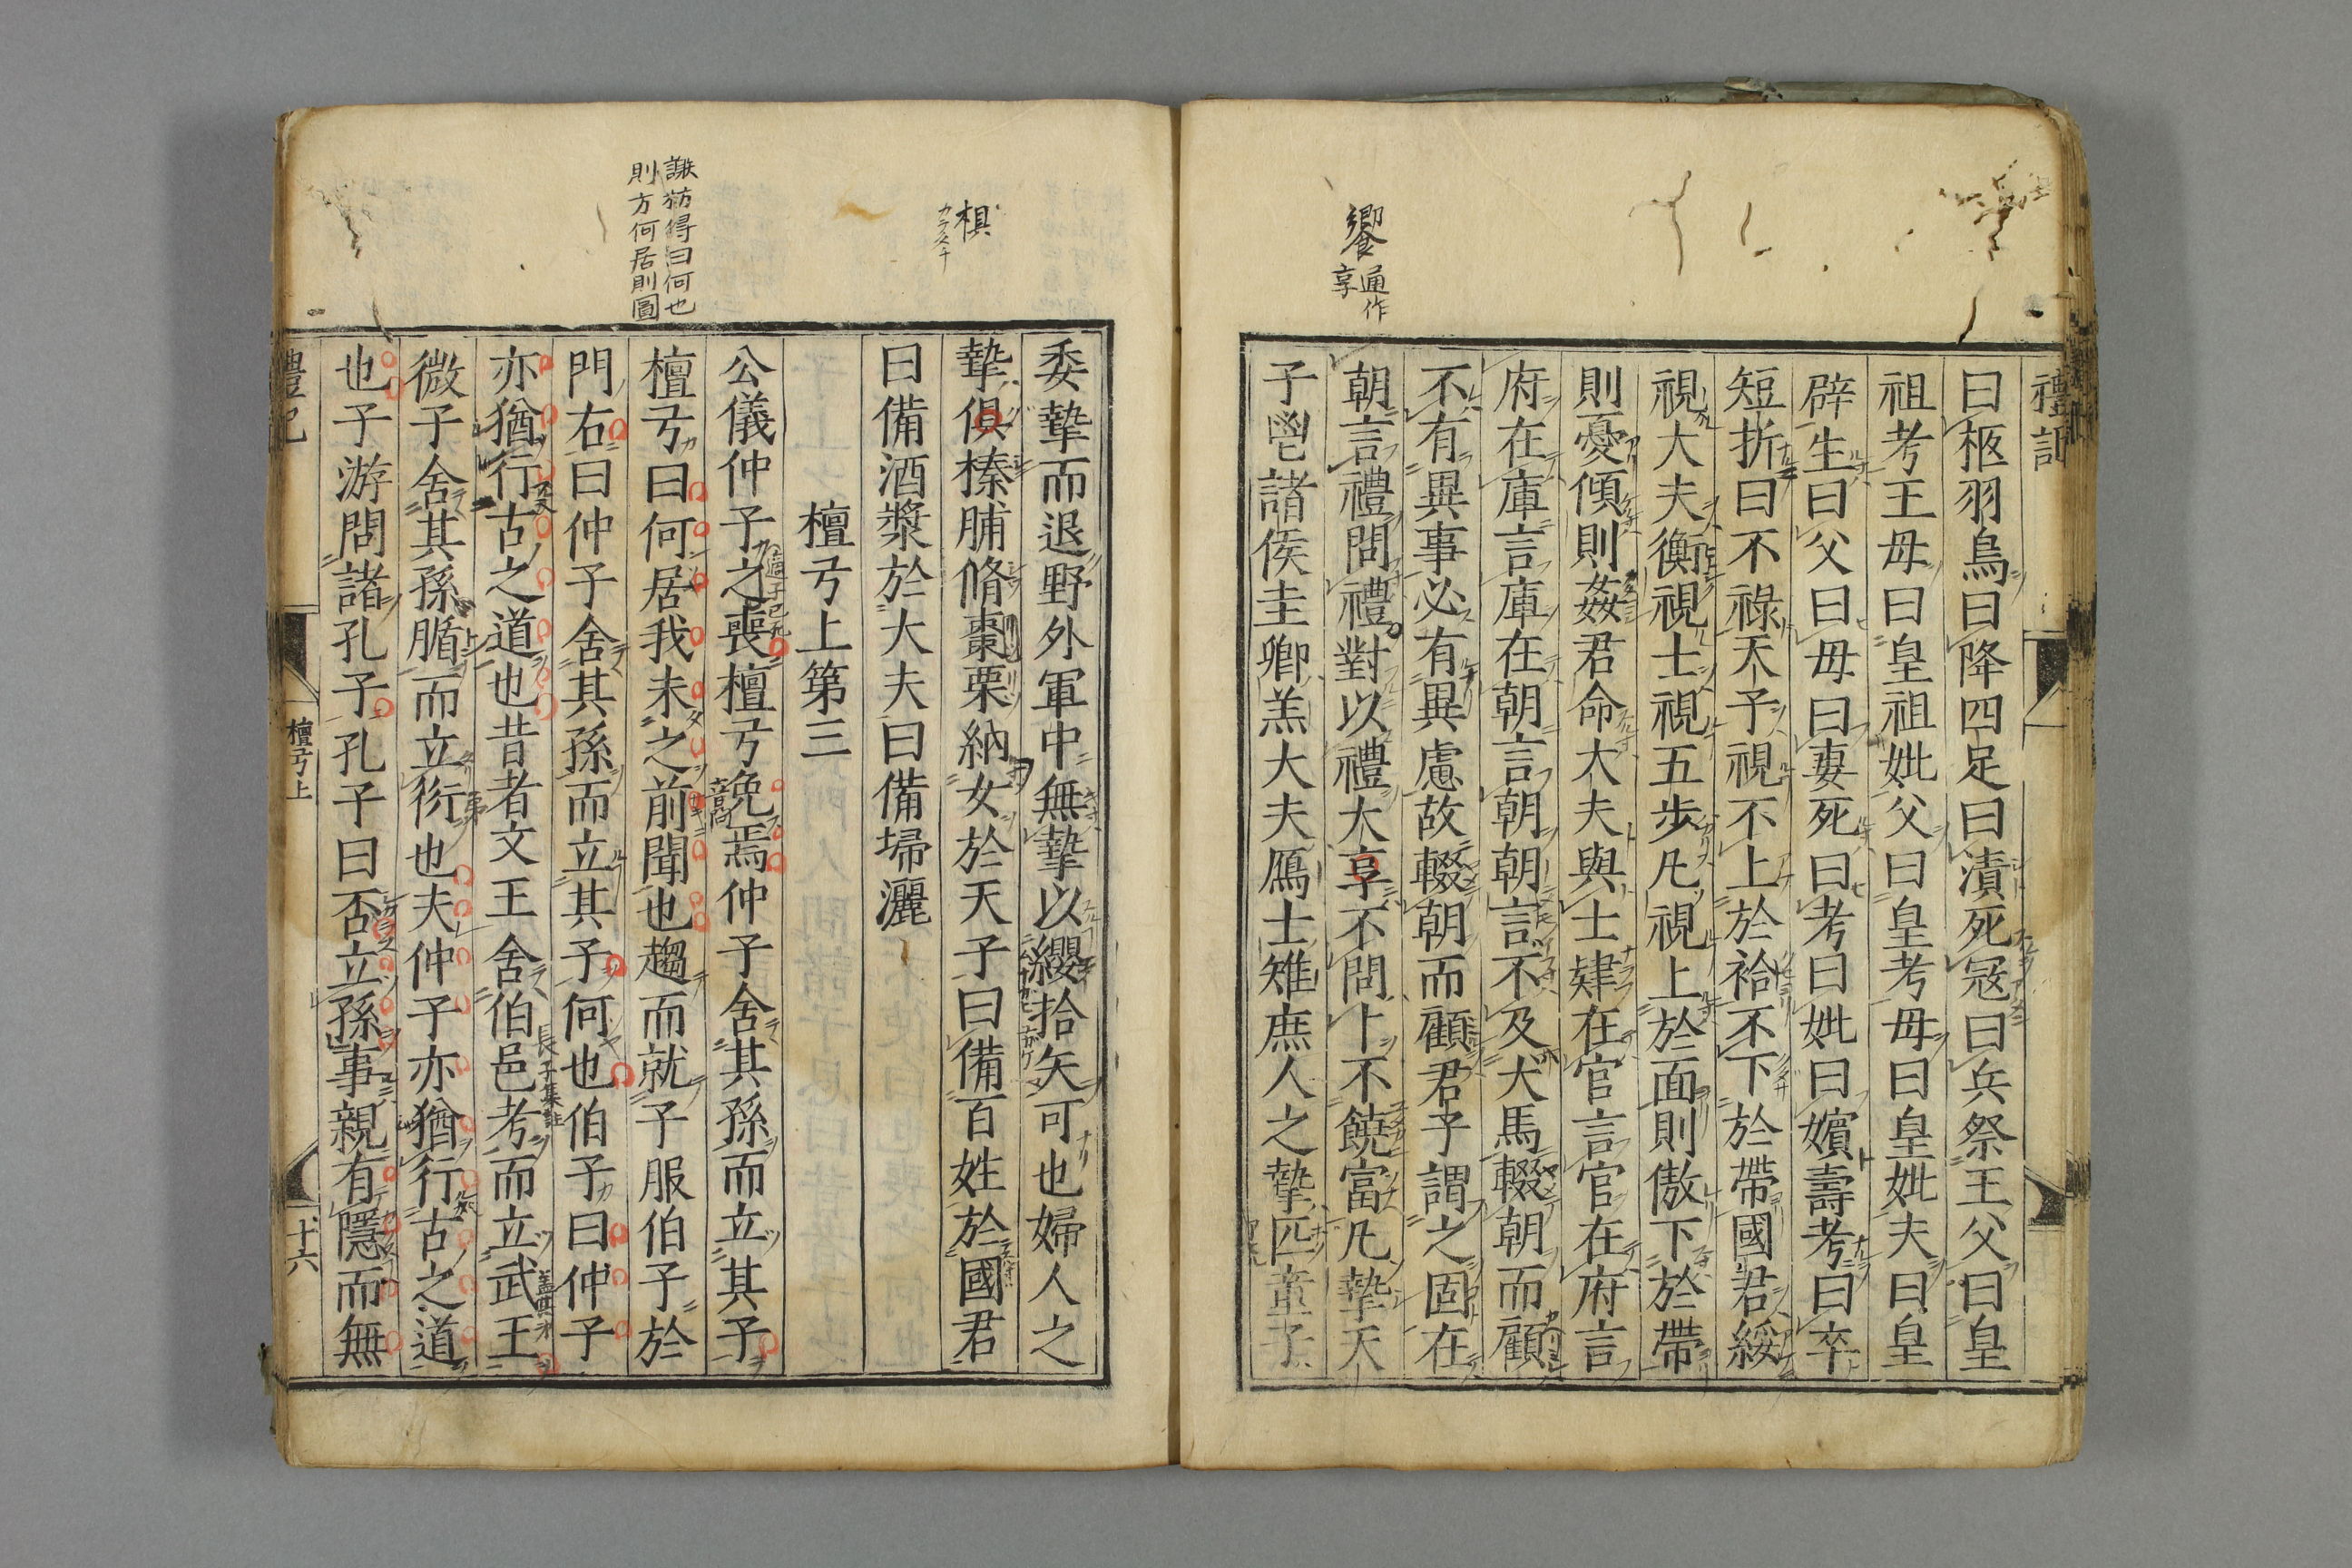 禮記
曰柩羽鳥曰降四足曰漬死寇曰兵祭王父曰皇
祖考王母曰皇祖妣父曰皇考母曰皇妣夫曰皇
辟生曰父曰母曰妻死曰考曰妣曰嬪壽考曰卒
短折曰不祿天子視不上於袷不下於帶國君綏
視大夫衡視士視五步凡視上於面則敖下於帶
則憂傾則姦君命大夫與士肄在官言官在府言
府在庫言庫在朝言朝朝言不及犬馬輟朝而顧
不有異事必有異慮故輟朝而顧君子謂之固在
朝言禮問禮對以禮大享不問卜不饒富凡摯天
子鬯諸侯圭卿羔大夫鴈士雉庶人之摯匹童子
饗通作
享
委摯而退野外軍中無摯以纓拾矢可也婦人之
摯俱榛脯脩棗栗納女於天子曰備百姓於國君
曰備酒漿於大夫曰備埽灑
檀弓上第三
公儀仲子之喪檀弓免焉仲子舍其孫而立其子
檀弓曰何居我未之前聞也趨而就子服伯子於
門右曰仲子舍其孫而立其子何也伯子曰仲子
亦猶行古之道也昔者文王舍伯邑考而立武王
微子舍其孫腯而立衍也夫仲子亦猶行古之道
也子游問諸孔子孔子曰否立孫事親有隱而無
椇
得曰何也
則方何居則圓
禮記
檀弓上
十六